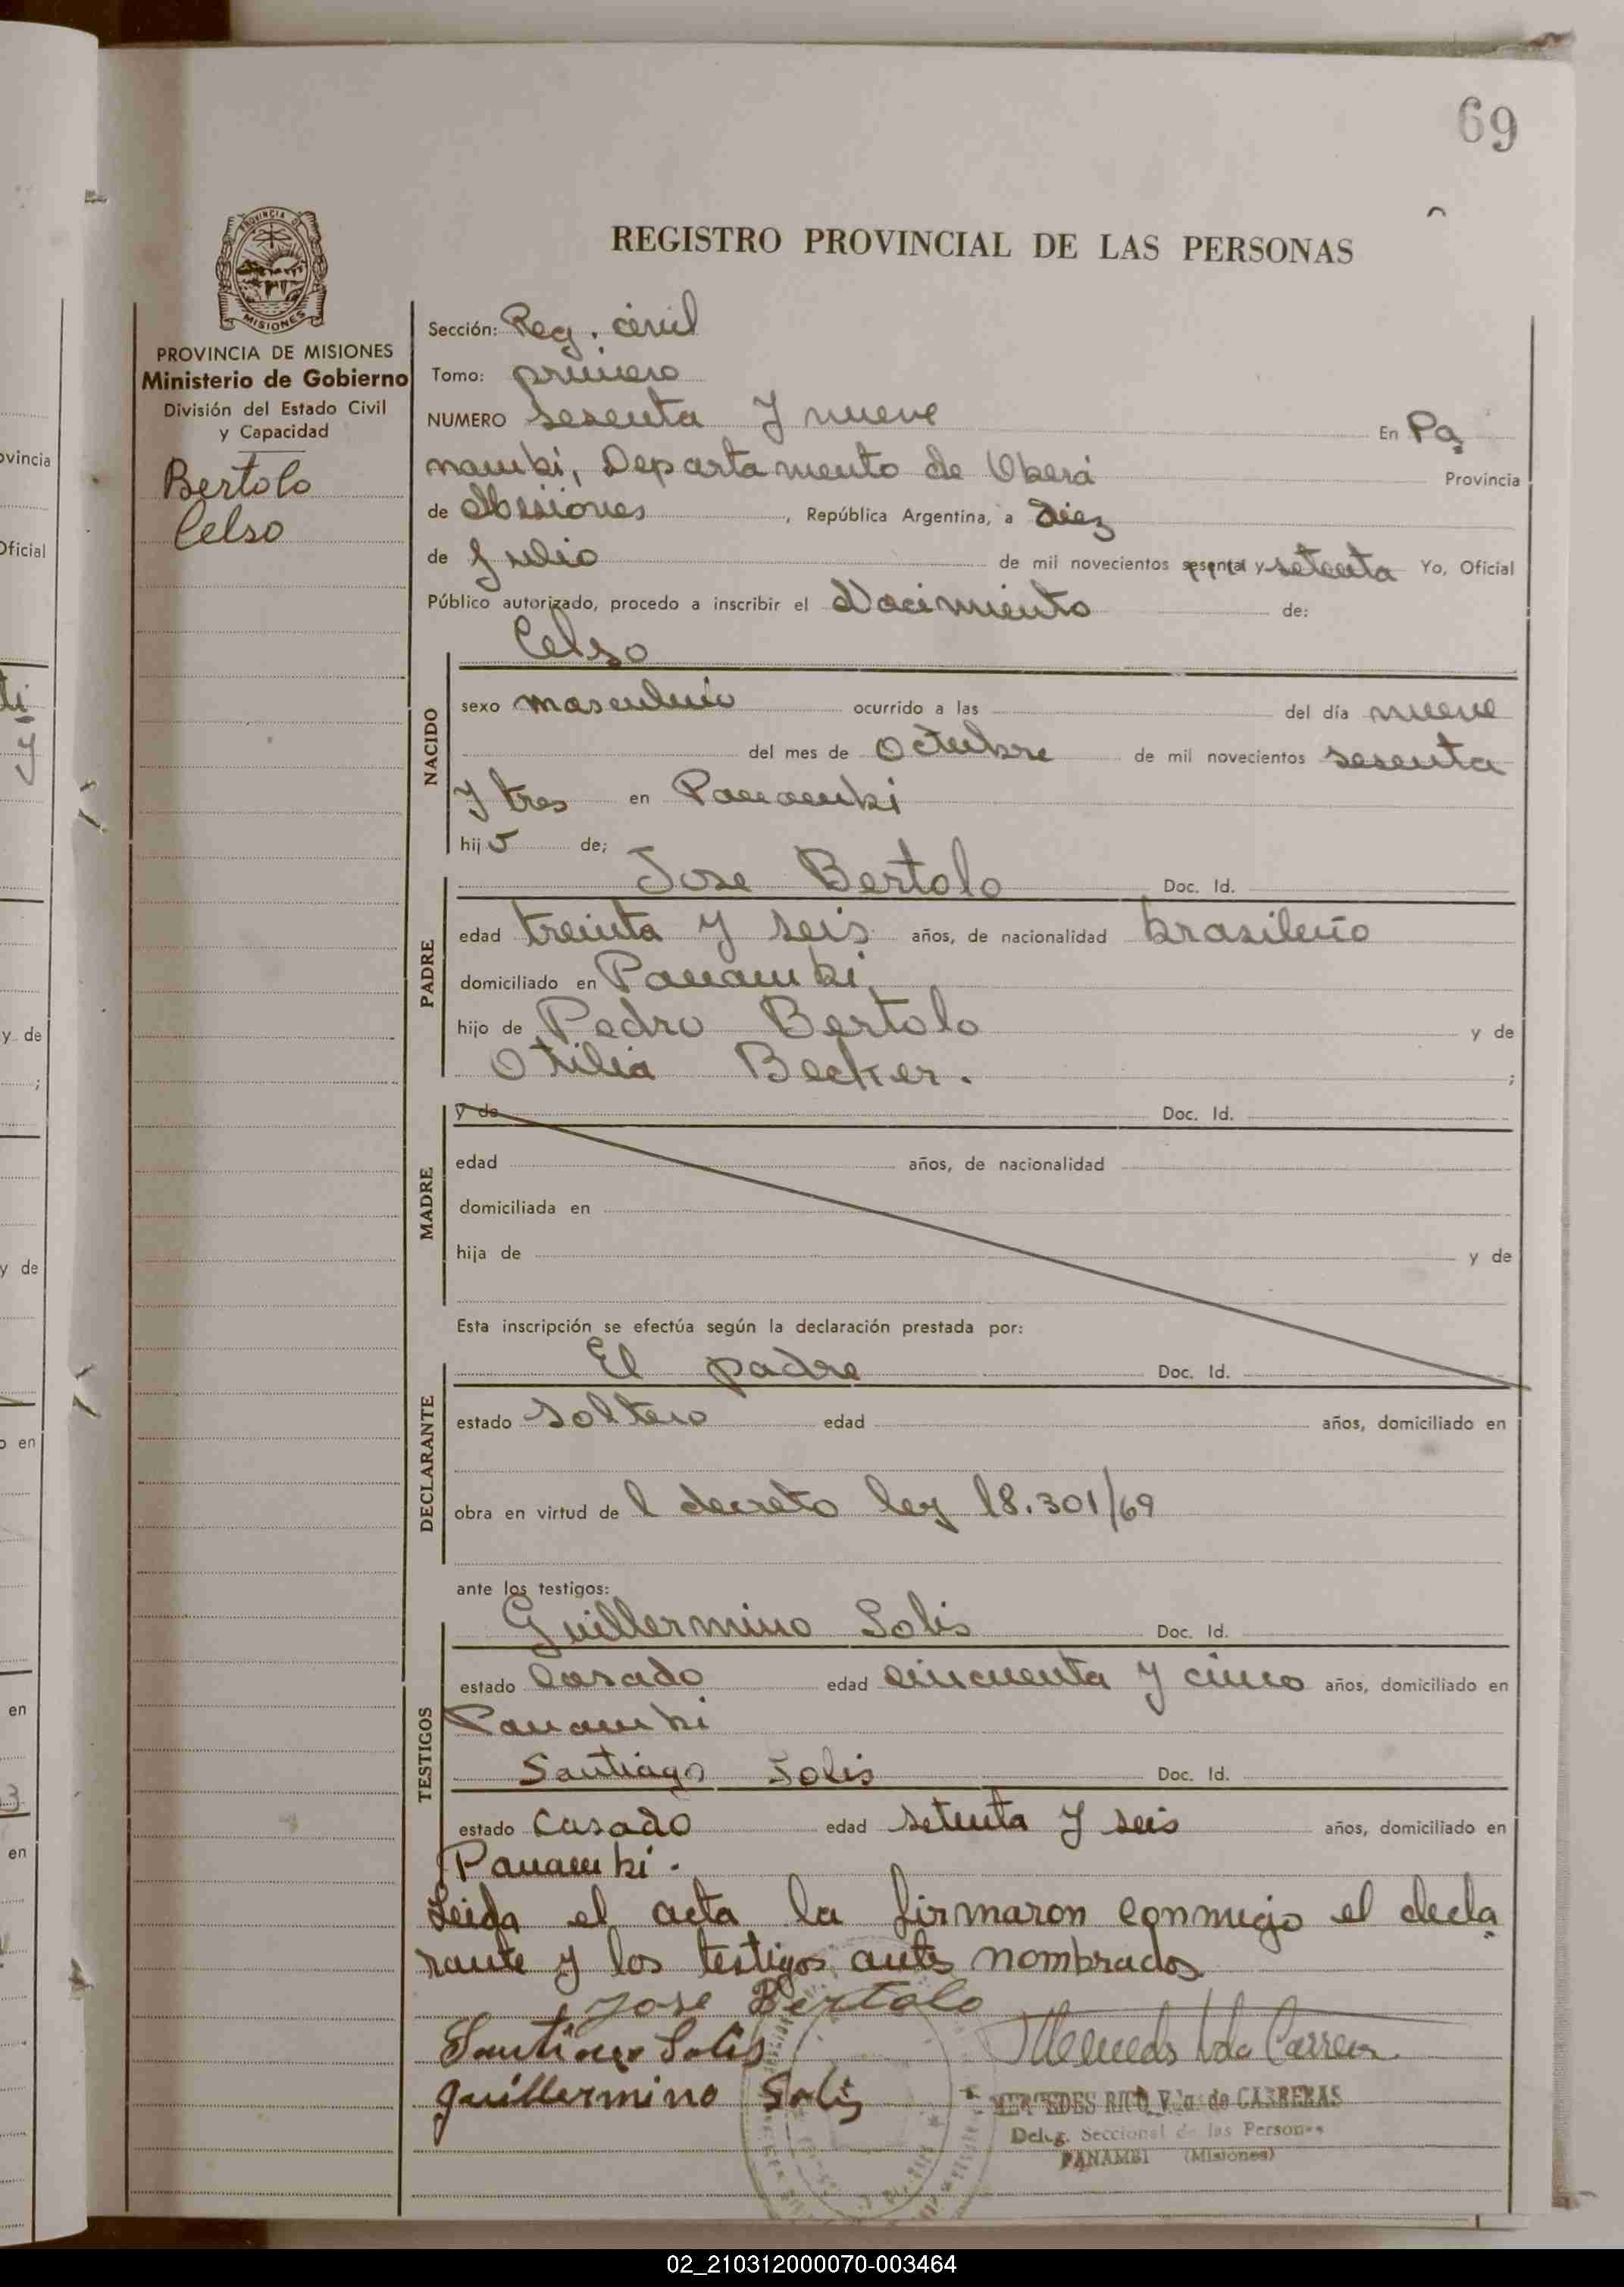 69
REGISTRO PROVINCIAL DE LAS PERSONAS
PROVINCIA DE
MISIONES
PROVINCIA DE MISIONES
Ministerio de Gobierno
División del Estado Civil
y Capacidad
Bertolo
Celso
Sección: Reg. civil
Tomo: primero
NUMERO sesenta y nueve En Pa
nambi, Departamento de Oberá Provincia
de Misiones, República Argentina, a diez
de Julio de mil novecientos sesenta y setenta Yo, Oficial
Público autorizado, procedo a inscribir el Nacimiento de:
Celso
NACIDO
sexo masculino ocurrido a las del día nueve
del mes de Octubre de mil novecientos sesenta
y tres en Panambi
hijo de;
Jose Bertolo Doc. Id.
PADRE
edad treinta y seis años, de nacionalidad brasileño
domiciliado en Panambi
hijo de Pedro Bertolo y de
Otilia Becker. ;
MADRE
y de Doc. Id.
edad años, de nacionalidad
domiciliada en
hija de y de
Esta inscripción se efectúa según la declaración prestada por:
El padre Doc. Id.
DECLARANTE
estado soltero edad años, domiciliado en
obra en virtud de l decreto ley 18.301/69
ante los testigos:
Guillermino Solis Doc. Id.
TESTIGOS
estado casado edad cincuenta y cinco años, domiciliado en
Panambi
Santiago Solis Doc. Id.
estado casado edad setenta y seis años, domiciliado en
Panambi.
Leida el acta la firmaron conmigo el decla
rante y los testigos antes nombrados
Jose Bertolo
Santiago Solis
Guillermino Solis
MERCEDES RICO Vda. de CARRERAS
Deleg. Seccional de las Personas
PANAMBI (Misiones)
ovincia
Oficial
ti
y
y de
;
y de
o en
en
3
en
02_210312000070-003464